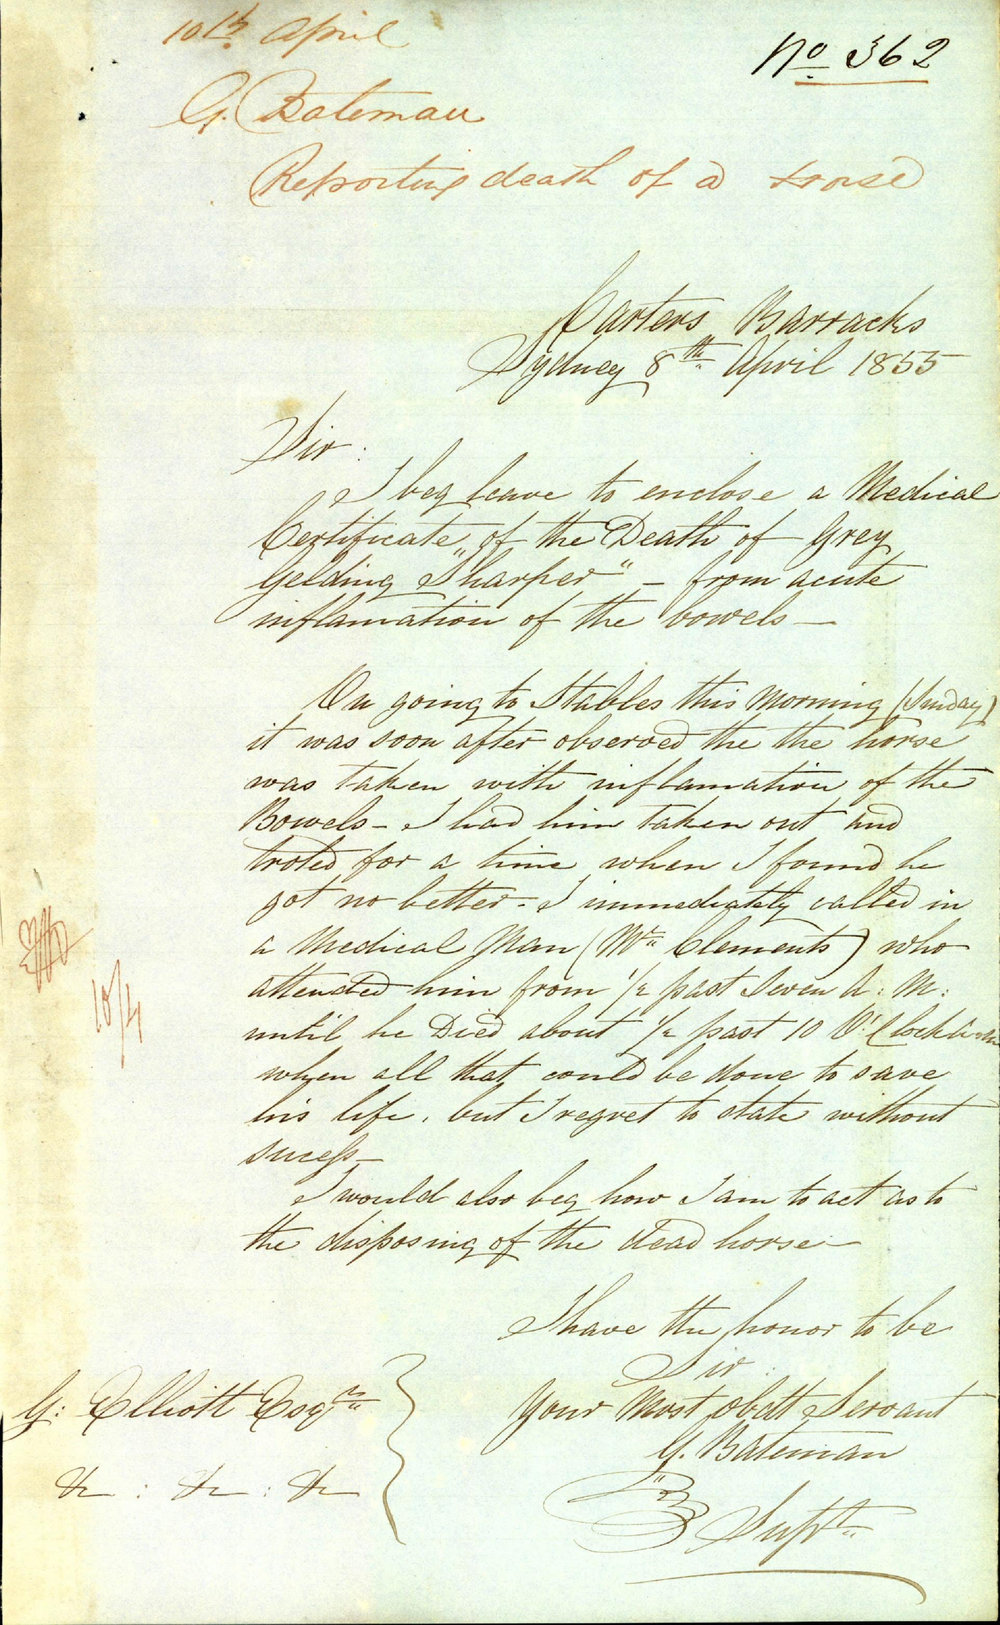 10th April
No 362
G. Bateman
Reporting death of a Horse
Carters Barracks
Sydney 8th April 1855
Sir:
I beg leave to enclose a Medical
Certificate of the Death of Grey
Gelding "Sharper" – from acute
inflamation of the bowels –
On going to Stables this Morning (Sunday)
it was soon after observed the the horse
was taken with inflamation of the
Bowels – I had him taken out and
troted for a time when I found he
got no better – I immediately called in
a Medical Man (Mr Clements) who
attended him from 1/2 past Seven A: M:
until he Died about 1/2 past 10 O'Clock
when all that could be done to save
his life, but I regret to state without
sucess –
I would also beg how I am to act as to
the disposing of the dead horse –
10/4
I have the honor to be
Sir
Your Most Obdt Servant
G. Bateman
Supt
G: Elliott Esqre
&c : &c : &c